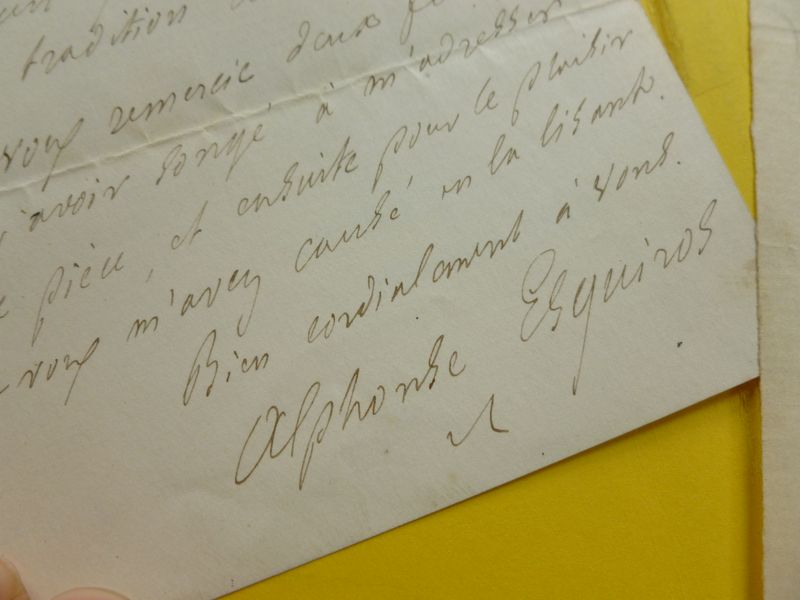 tradition
vous remercie deux f
d'avoir songé à m'adresser
pièce, et ensuite pour le plaisir
vous m'avez causé en la lisant.
Bien cordialement à vous.
Alphonse Esquiros